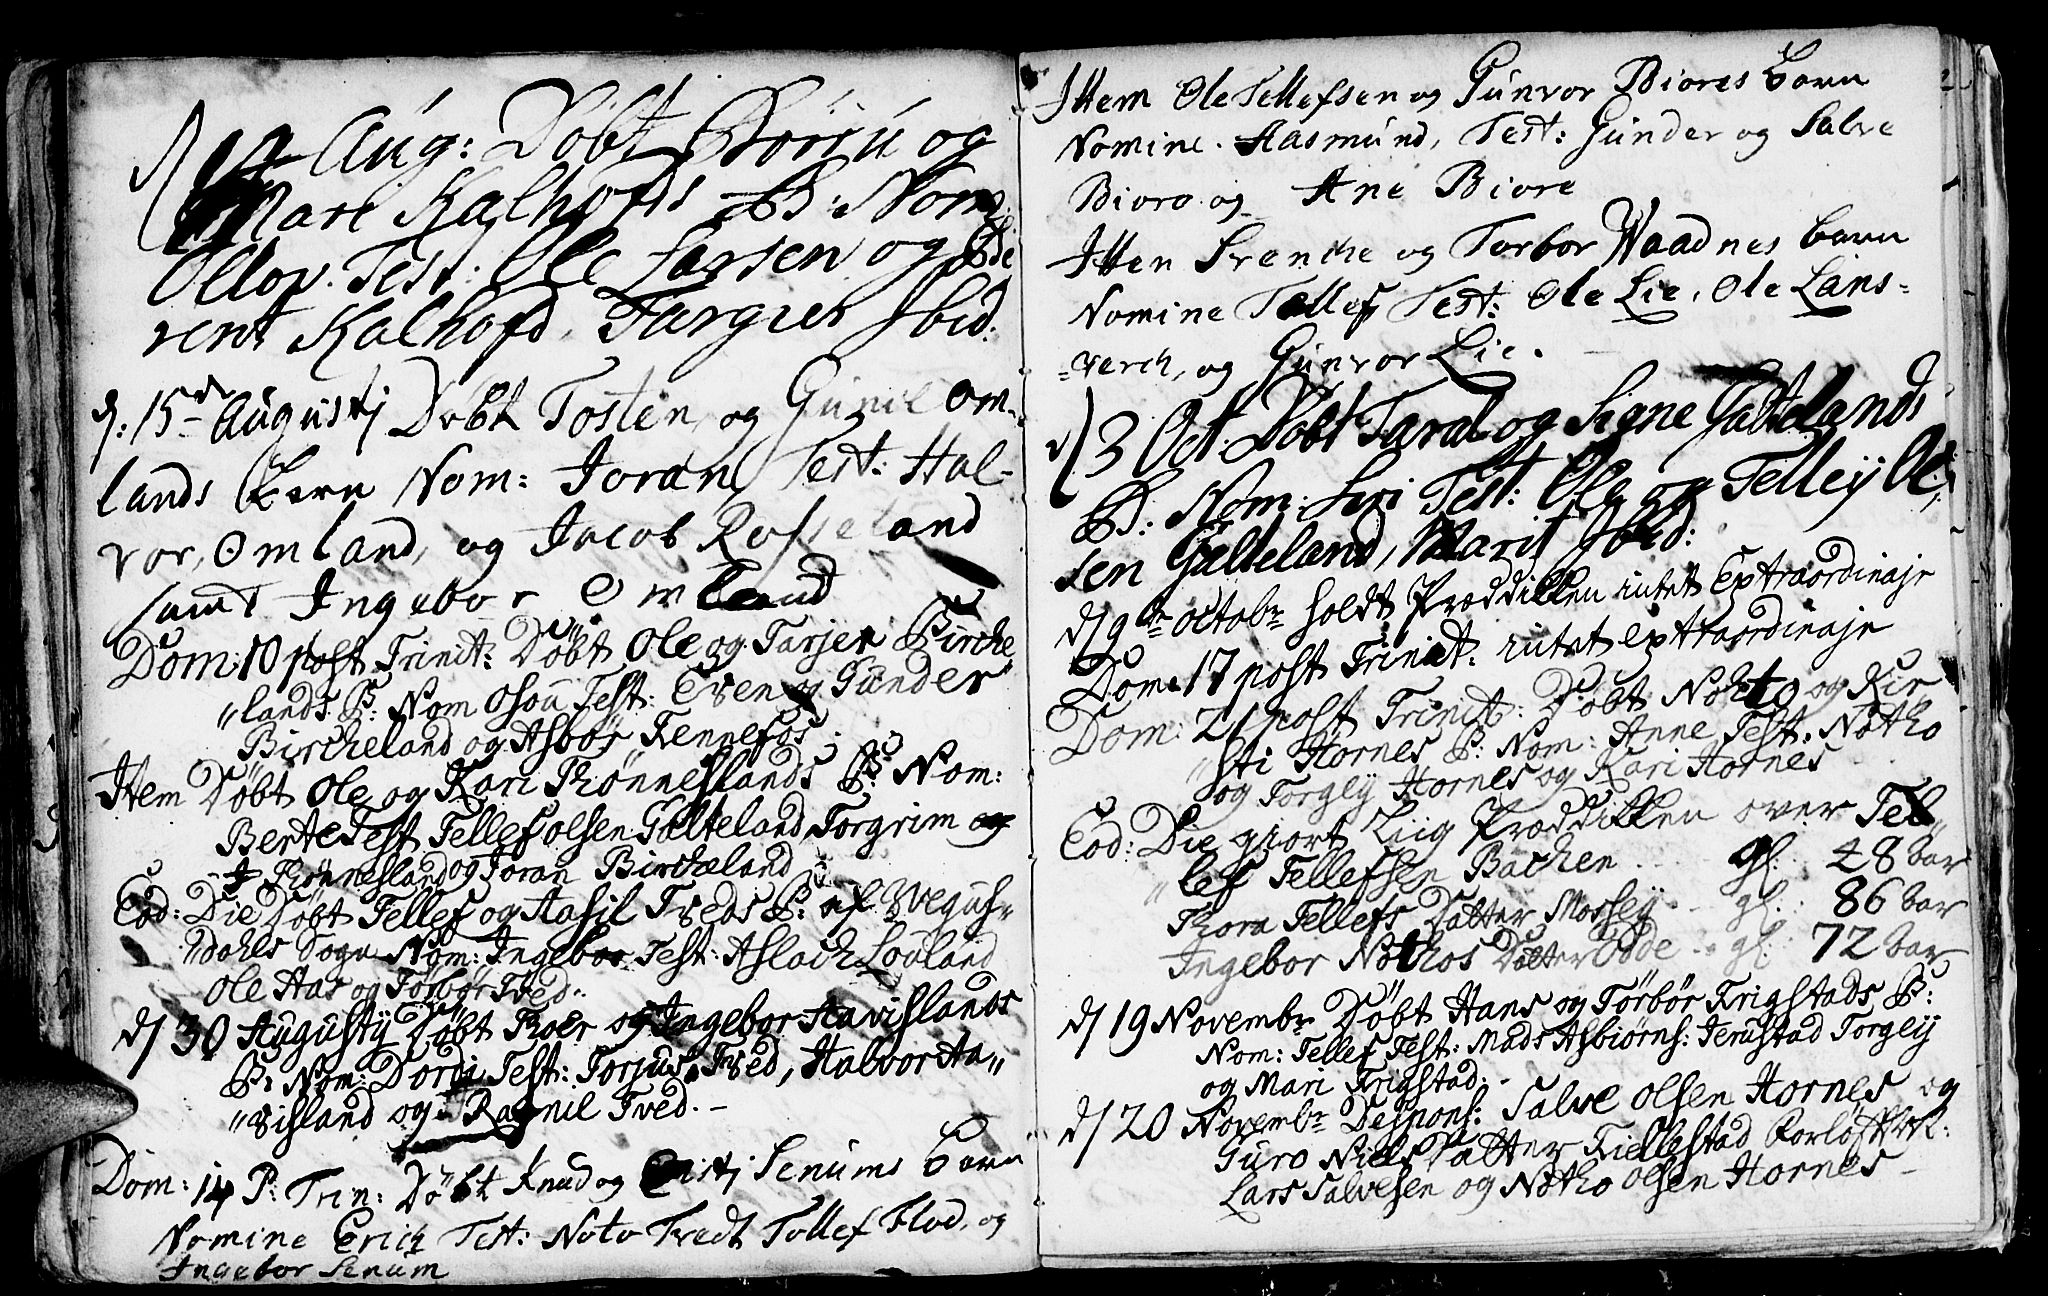 Aug: Döbt og
Mari Kalhofds B: Nom:
Ollov. Test: Ole Larsen og
rent Kalhofd, Targier Ibid:
d: 15 Augustj Döbt Tosten og Gunil Om-
lands barn Nom: Joran, Test: Hal-
vor, Omland, og Jacob Rosseland
samt Ingebor Omland
Dom: 10 post Trinit: Döbt Ole og Tarjer Birche
"lands B: Nom Osou Test: Even og Gunder
Bircheland og Asbör Fennefos
Item Döbt Ole og Kari Thönneslands B: Nom:
Berte Test Tellef olsen Galteland, Torgrim og
Thönnesland og Joran Bircheland
Eod: Die Döbt Tellef og Aasil Tveds B: af Vegus"
"dahls Sogn Nom: Ingebor Test: Aslach Louland
Ole Aas og Törbör Tved.
d/ 30 Augustij Döbt Thoer og Ingebor Haavislands
B: Nom: Dordi Test: Torjus Tved, Halvor Ha"
"visland og Ragnil Tved. -
Dom: 14 P: Trin: Döbt Knud og Cristj Senums barn
Nomine Erich Test: Noto Tvedt Tollef Flod, og
Ingebor Senum
Item Ole Tellefsen og Gunvor Biores barn
Nomine. Aasmund, Test: Gunder og Salve
Bioro og Ane Biore
Item Svenche og Torbor Waadnes barn
Nomine Tellef Test: Ole Lie, Ole Lans=
=verch, og Gunvor Lie.
d/ 3 Oct. Döbt Taral og Signe Galtelands
B: Nom: Siri Test: Ole og Tellej Ol-
sen Galteland, Marit Ibid:
d/ 9 Octobr holdt Præddiken intet Extraordinajr
Dom: 17 post Trinit: intet extraordinajr
Dom: 21 post Trinit: Döbt Nohto og Kir"
"sti Hornes B: Nom: Anne Test. Notho
og Torgej Hornes og Kari Hornes
Eod: Die giort Liig Præddiken over Tel"
"lef Tellefsen Bachen gl: 48 aar
Thora Tellefs Datter Mossej gl: 86 aar
Ingebor Nothos Datter Odde gl: 72 aar
d/ 19 Novembr Döbt Hans og Törbör Frigstads B:
Nom: Tellef Test: Mads Asbiörns: Ierustad Torgeij
og Mari Frigstad. -
d/ 20 Novembr Despons: Salve olsen Hornes og
Guro Niels Datter Fiellestad
Lars Salvesen og Notho olsen Hornes -